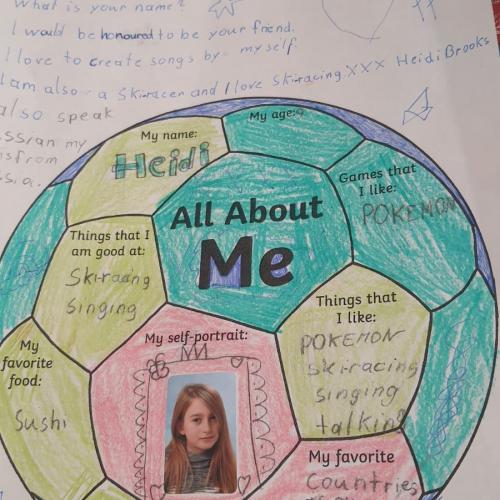 What is your name?
I would be honoured to be your friend.
I love to create songs by myself
I am also a Ski-racer and I love Ski-racing XXX Heidi Brooks
also speak
ssian my
from
My name:
Heidi
My age: 9
Games that
I like:
POKEMON
All About
Me
Things that I
am good at:
Ski-racing
singing
Things that
I like:
POKEMON
ski-racing
singing
talking
My self-portrait:
My
favorite
food:
Sushi
My favorite
countries